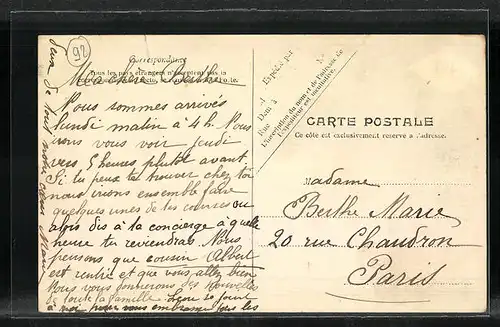 92
Correspondance
Tous les pays étrangers n'acceptent pas la
Ma chère Berthe
Nous sommes arrivés
lundi matin à 4h. Nous
irons vous voir jeudi
vers 5 heures plutôt avant
Si tu peux te trouver chez toi
nous irions ensemble faire
quelques unes de tes courses ou
alors dis à la concierge à quelle
heure tu reviendras. Nous
pensons que cousin Albert
est rentré et que vous allez bien
Nous vous donnerons des nouvelles
de toute la famille.
pour vous embrasser tous les
Expédié par
Rue
L'inscription du nom et de l'adresse de
l'expéditeur est facultative.
CARTE POSTALE
Ce côté est exclusivement réservé à l'adresse.
Madame
Berthe Marie
20 rue Chaudron
Paris